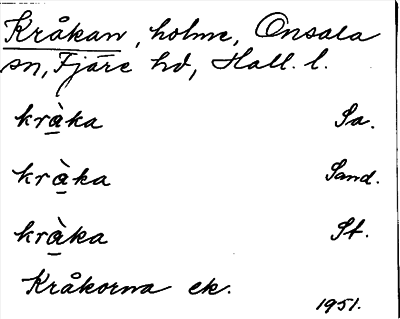 Kråkan, holme, Onsala
sn, Fjäre hd, Hall. l.
krà̱ka Sa.
krà̱ka Sand.
krà̱ka St.
Kråkorna ek.
1951.